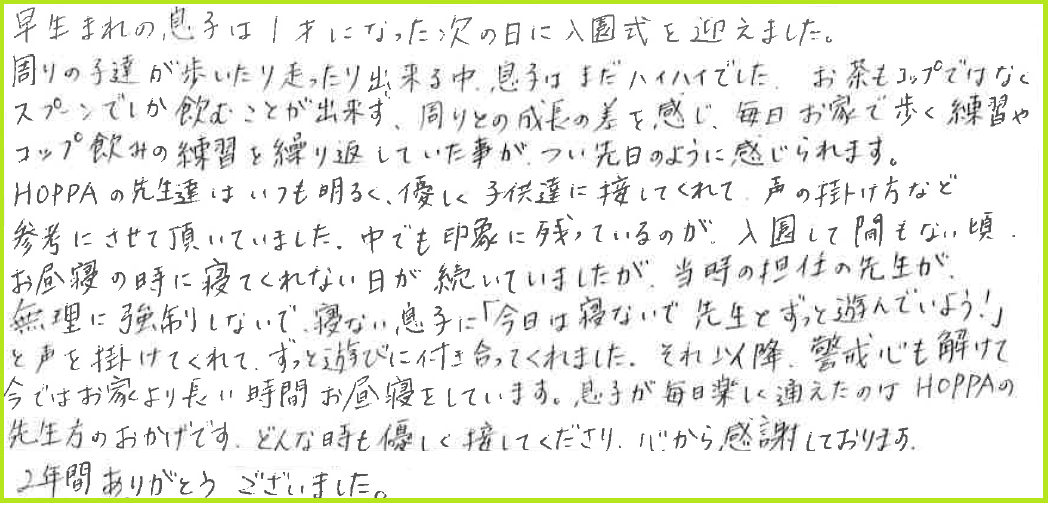 早生まれの息子は1才になった次の日に入園式を迎えました。
周りの子達が歩いたり走ったり出来る中、息子はまだハイハイでした、お茶もコップではなく
スプーンでしか飲むことが出来ず、周りとの成長の差を感じ、毎日お家で歩く練習や
コップ飲みの練習を繰り返していた事が、つい先日のように感じられます。
HOPPAの先生達はいつも明るく、優しく子供達に接してくれて、声の掛け方など
参考にさせて頂いていました。中でも印象に残っているのが、入園して間もない頃、
お昼寝の時に寝てくれない日が続いていましたが、当時の担任の先生が、
無理に強制しないで、寝ない息子に「今日は寝ないで先生とずっと遊んでいよう!」
と声を掛けてくれて、ずっと遊びに付き合ってくれました。それ以降、警戒心も解けて
今ではお家より長い時間お昼寝をしています。息子が毎日楽しく通えたのはHOPPAの
先生方のおかげです。どんな時も優しく接してくださり、心から感謝しております。
2年間ありがとうございました。